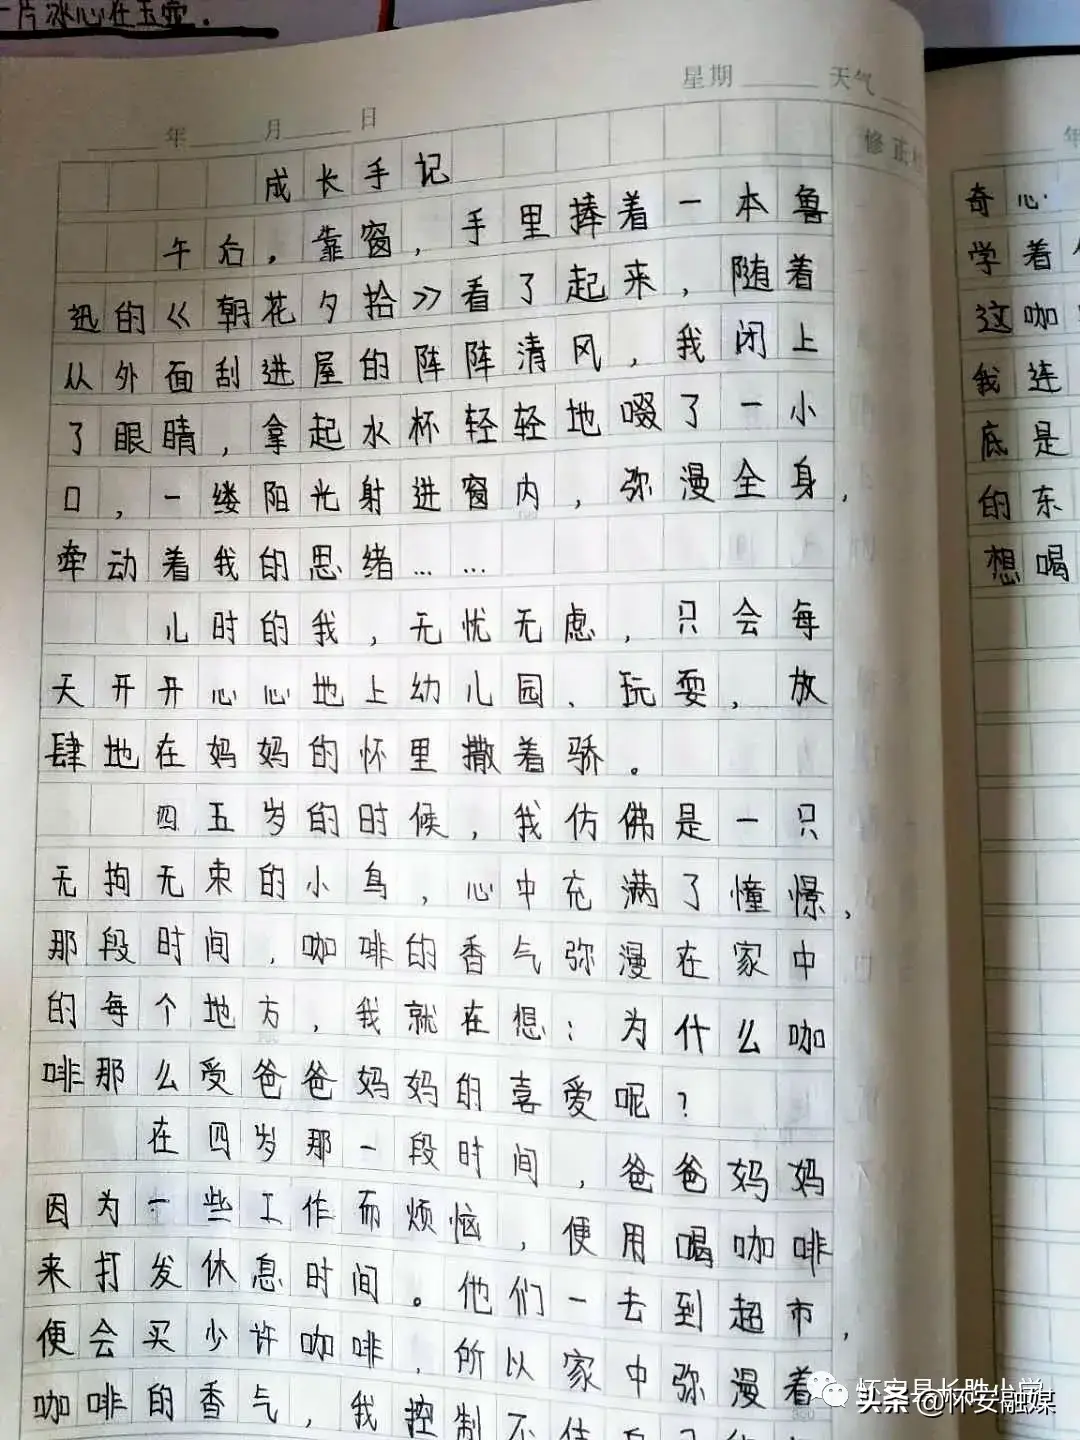 一片冰心在玉壶.
年 月 日 星期 天气
修正
成长手记
午后,靠窗,手里捧着一本鲁
迅的《朝花夕拾》看了起来,随着
从外面刮进屋的阵阵清风,我闭上
了眼睛,拿起水杯轻轻地啜了一小
口,一缕阳光射进窗内,弥漫全身,
牵动着我的思绪……
儿时的我,无忧无虑,只会每
天开开心心地上幼儿园、玩耍,放
肆地在妈妈的怀里撒着骄。
四五岁的时候,我仿佛是一只
无拘无束的小鸟,心中充满了憧憬,
那段时间,咖啡的香气弥漫在家中
的每个地方,我就在想:为什么咖
啡那么受爸爸妈妈的喜爱呢?
在四岁那一段时间,爸爸妈妈
因为一些工作而烦恼,便用喝咖啡
来打发休息时间。他们一去到超市,
便会买少许咖啡,所以家中弥漫着
咖啡的香气,我控制不住
年
奇心
学着
这咖
我连
底是
的东
想喝
怀安县长胜小学
头条 @怀安融媒